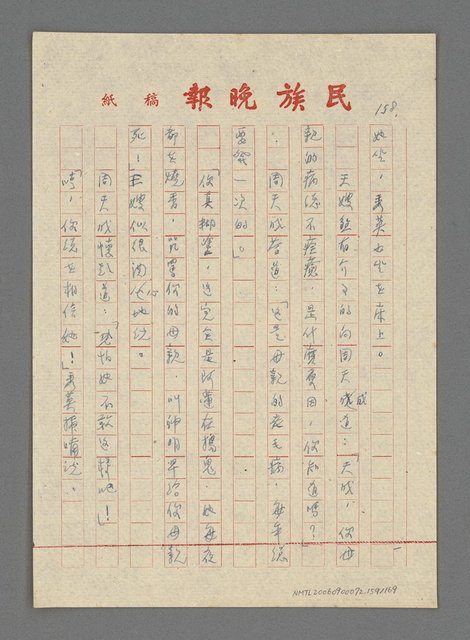 民族晚報 稿紙
158,
她坐，秀英也坐在床上。
天嫂鄭有介事的向周天成道：「天成，你母
親的病總不痊癒，是什麼原因，你知道嗎？」
：周天成答道：「這是母親的老毛病，每年總
要發一次的。」
你真糊塗，這完全是阿蓮在搗鬼，她每夜
都在燒香，咒罵你的母親，叫神明早給你母親
死！」王嫂似很關心地說。
周天成懷疑道：「恐怕她不敢這樣吧！」
「嘻，你總是相信她！」秀英插嘴說。
NMTL20060900072.159/169